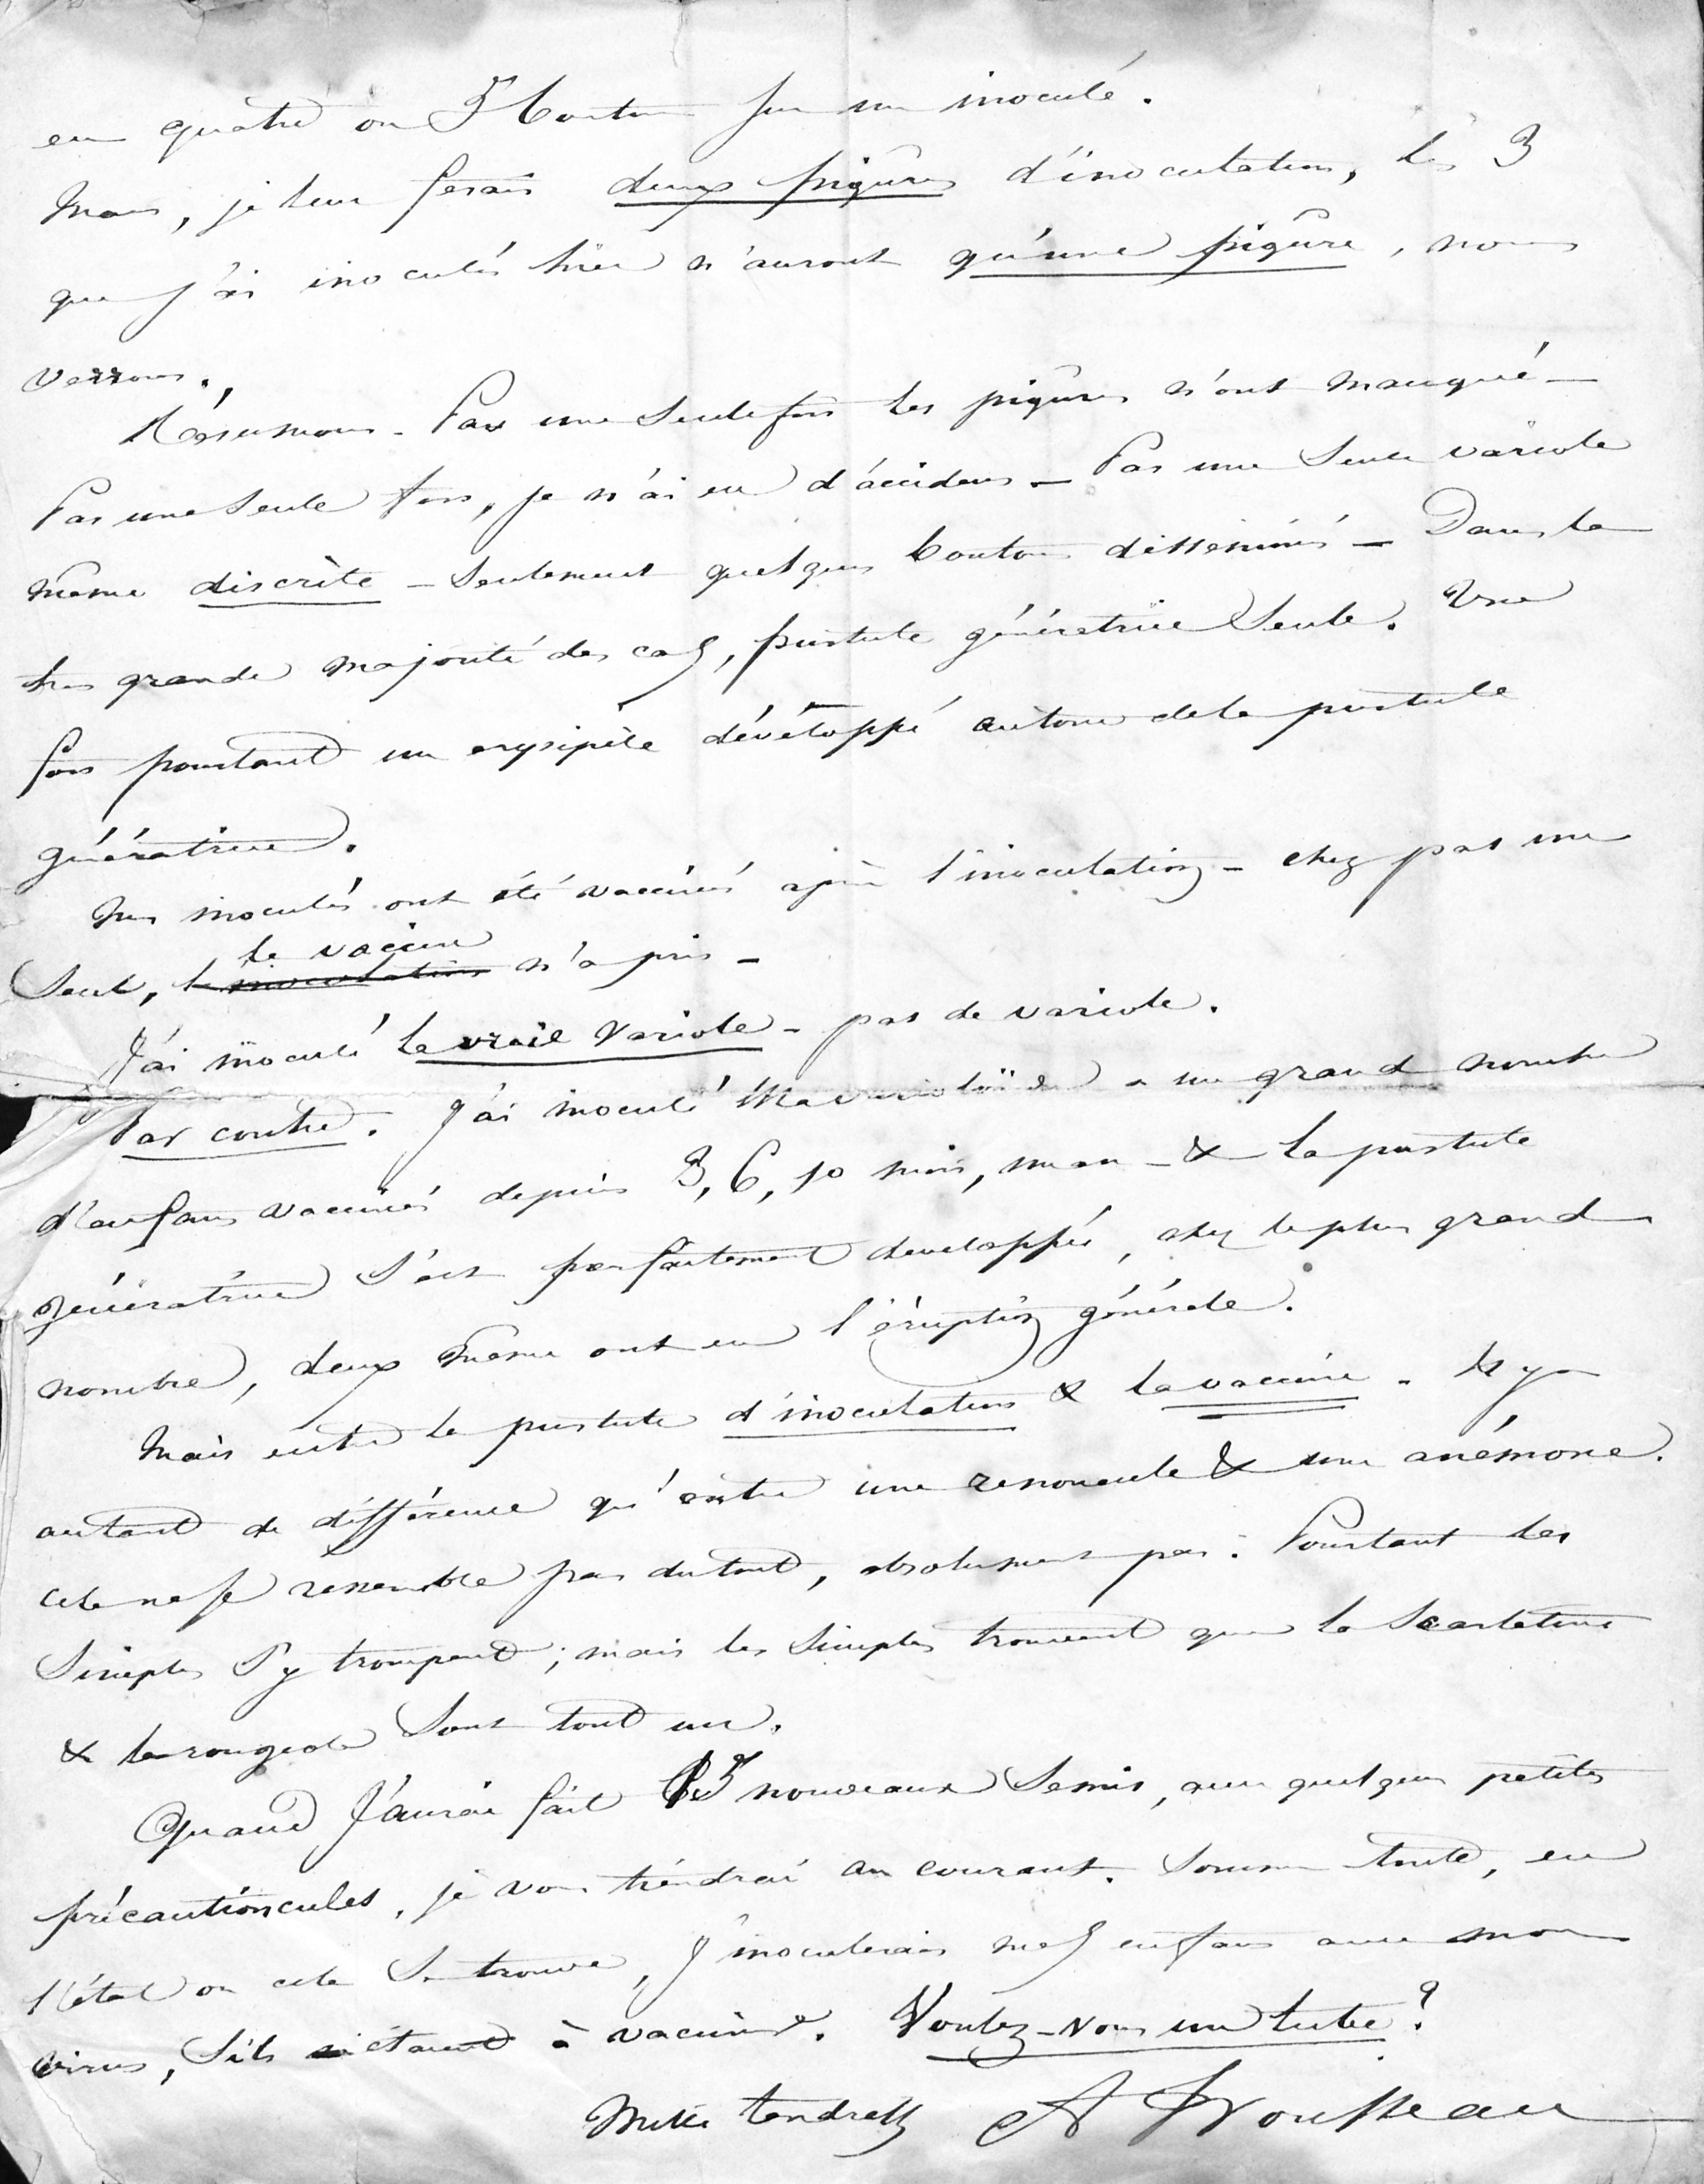 eu quatre ou 5 boutons sur un inoculé.
Mais, je leur fesais deux piqûres d'inoculation, les 3
que j'ai inoculés hier n'auront qu'une piqûre, nous
verrons.
Résumons - Pas une seule fois les piqûres n'ont manqué -
Pas une seule fois, je n'ai eu d'accidens - Pas une seule variole
même discrète - Seulement quelques boutons disséminés - Dans la
très grande majorité des cas, pustule génératrice seule. Une
fois pourtant un erysipèle développé autour de la pustule
génératrice.
Mes inoculés ont été vaccinés après l'inoculation - chez pas un
le vaccin
Seul, l'inoculation n'a pris -
J'ai inoculé la vraie Variole - pas de variole.
Par contre. J'ai inoculé ma varioloïde a un grand nombre
d'enfans vaccinés depuis 3, 6, 10 mois, un an - & la pustule
génératrice s'est parfaitement developpée, chez le plus grand
nombre, deux même ont eu l'éruption générale.
Mais entre la pustule d'inoculation & la vaccine - Il y a
autant de différence qu'entre une renoncule & une anémone.
Cela ne se ressemble pas du tout, absolument pas. Pourtant les
Simples s'y trompent; mais les simples trouvent que la Scarlatine
& la rougeole sont tout un.
Quand j'aurai fait nouveaux Semis, avec quelques petites
précautioncules, je vous tiendrai au courant. Somme toute, en
l'état où cela se trouve, j'inoculerais mes enfans avec mon
virus, s'ils étaient à vacciner. Voulez-vous un tube?
Mille tendresses A Trousseau